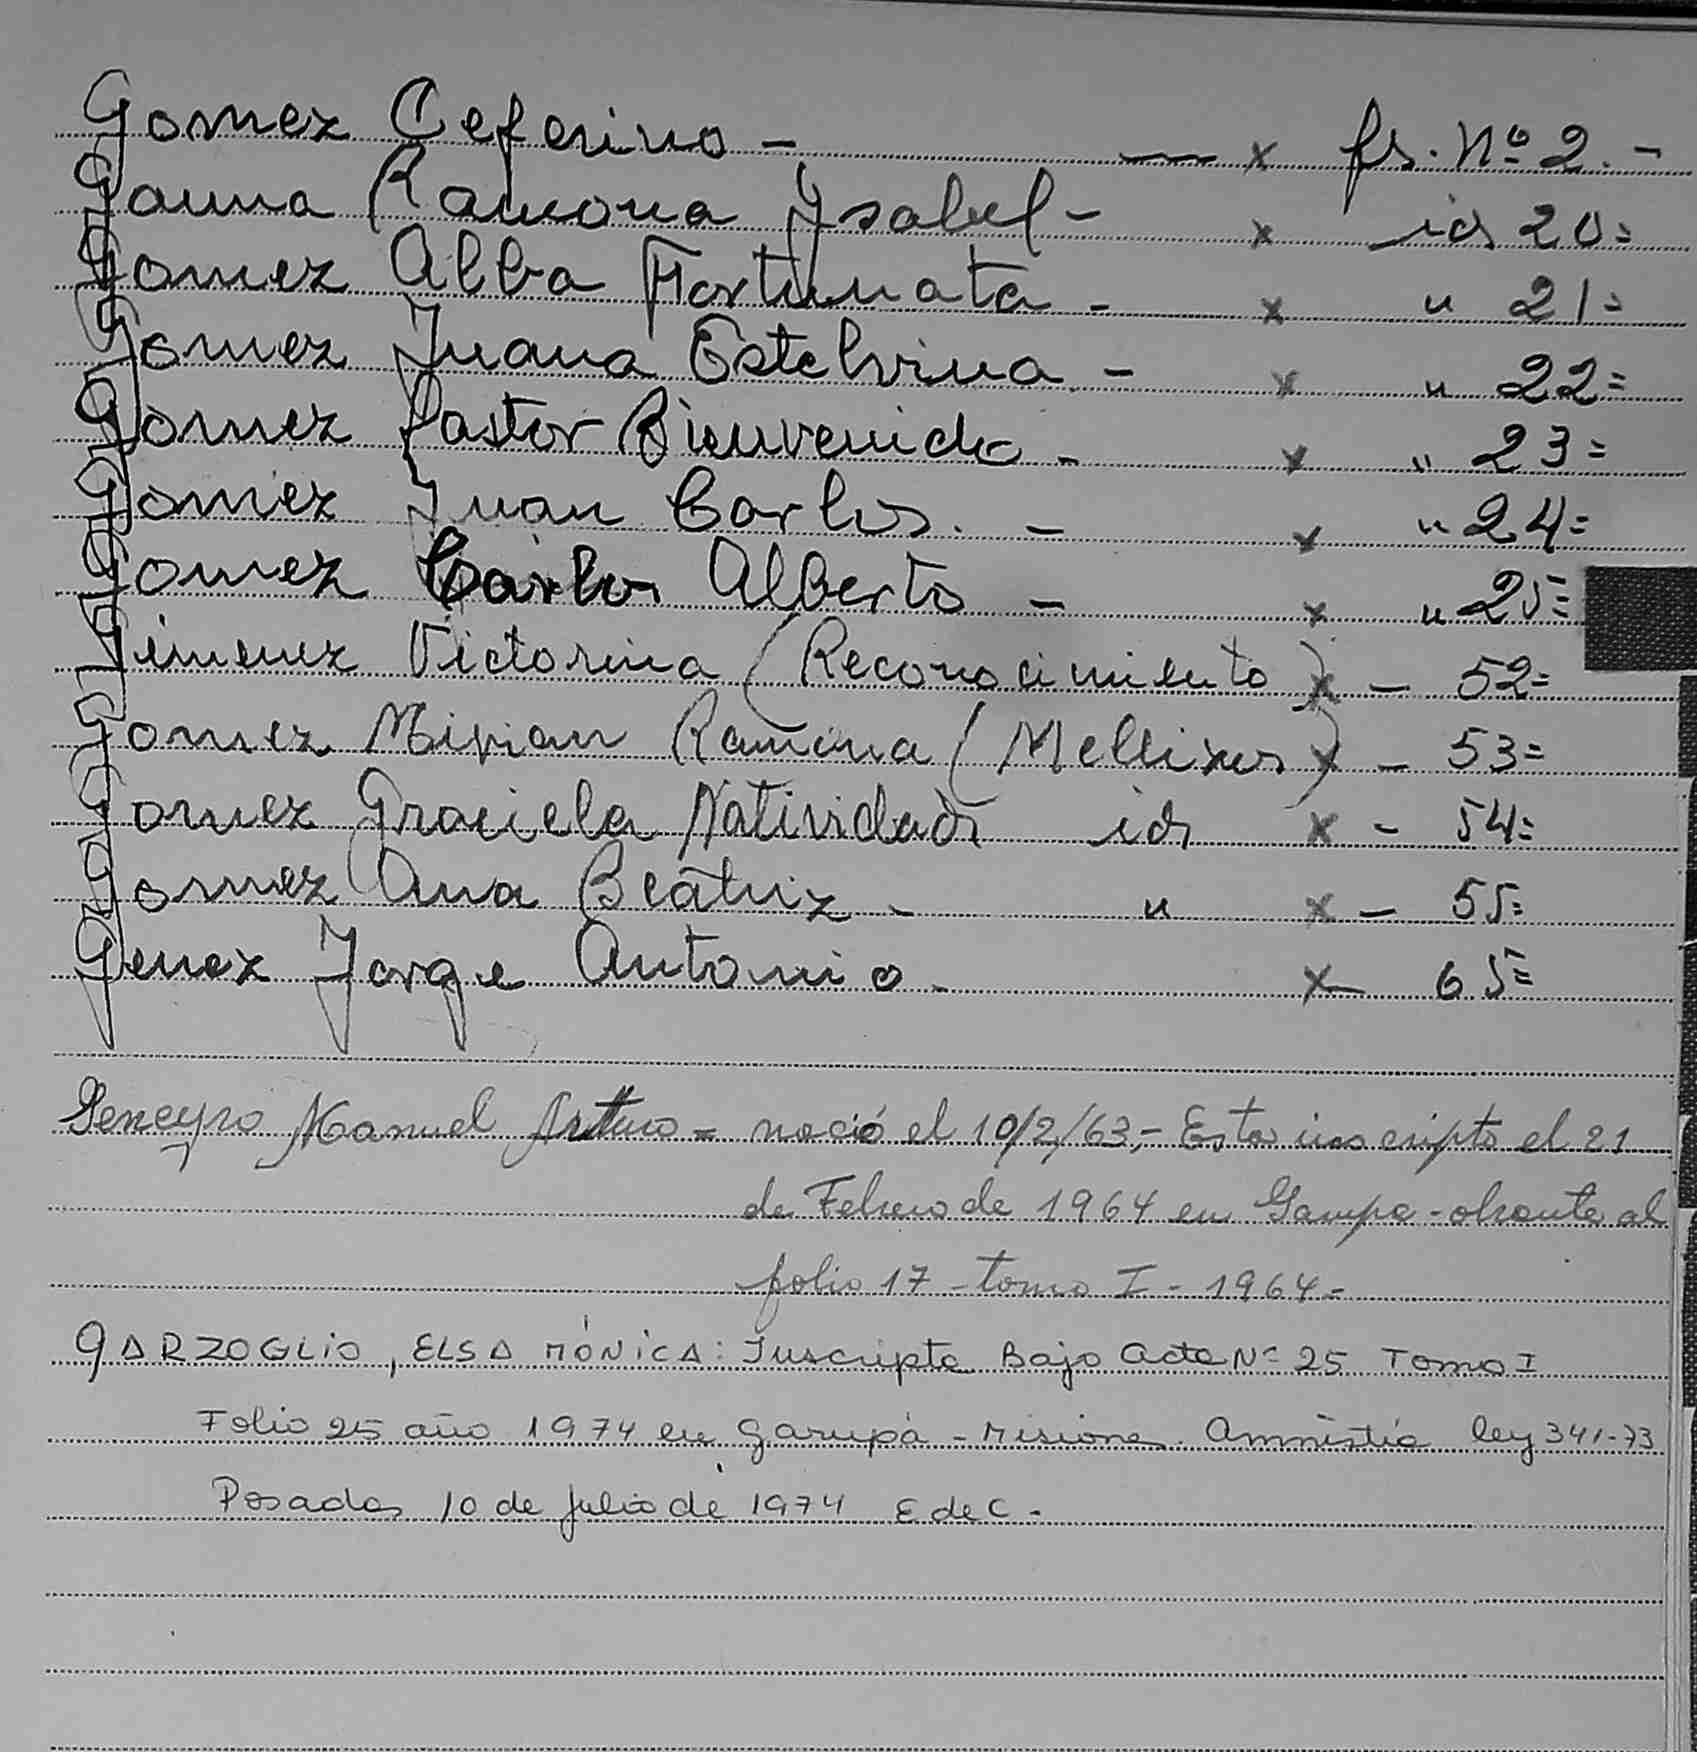 Gomez Ceferino - — x fs. Nº 2. -
Gauna Ramona Ysabel - x id 20=
Gomez Alba Fortunata - x " 21=
Gomez Juana Estelvina - x " 22=
Gomez Pastor Bienvenido - x " 23=
Gomez Juan Carlos. - x " 24=
Gomez Carlos Alberto - x " 25=
Gimenez Victorina (Reconocimiento) x - 52=
Gomez Mirian Ramona (Mellizos) x - 53=
Gomez Graciela Natividad id x - 54=
Gomez Ana Beatriz - " x - 55=
Genez Jorge Antonio - x - 65=
Manuel Arturo = nació el 10/2/63,- Esta inscripto el 21
de Febrero de 1964 en Garupa - obrante al
folio 17 - tomo I - 1964 -
GARZOGLIO, ELSA MÓNICA: Inscripta Bajo acta Nº 25 Tomo I
Folio 25 año 1974 en Garupá - Misiones. Amnistía ley 341-73
Posadas 10 de julio de 1974 E de C -